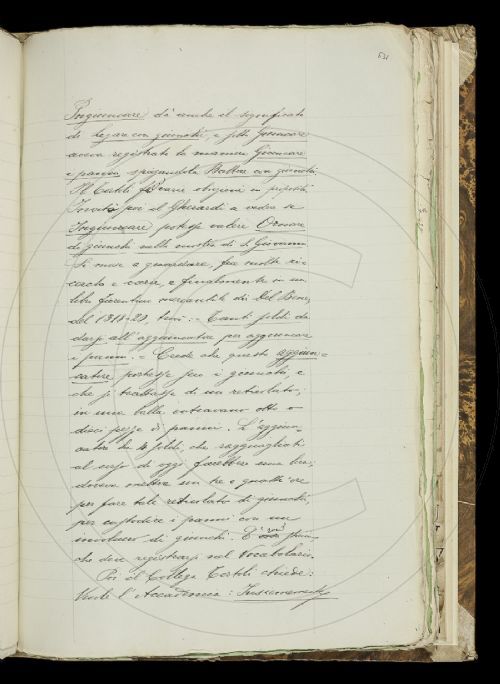 631
Ingiuncare dà anche il significato
di legare con giunchi, e sotto Giuncare
aveva registrato la maniera Giuncare
i panni spiegandola Ballar con giunchi.
Il Cav. fece obiezioni in proposito
poi il Gherardi a vedere se
Ingiuncare potesse valere Ornare
di giunchi nella mostra di S. Giovanni
Si mise a guardare, fra molte ri-
cerche e carte, e finalmente in un
libro fiorentino mercantile dei Del Bene,
del 1318-20, trovò: = Tanti soldi da
darsi all'aggiuncatore per aggiuncare
i panni. = Crede che questo aggiun=
catore portasse seco i giunchi, e
che si trattasse di un reticolato;
in una balla entravano otto o
dieci pezze di panni. L'aggiun-
catore da 4 soldi, che ragguagliati
al corso di oggi farebbero una lira,
doveva mettere un tre o quattr'ore
per fare tale reticolato di giunchi,
per custodire i panni con un
involucro di giunchi. E
che deve registrarsi nel Vocabolario.
Poi il Collega Tortoli chiede:
Vuole l'Accademia: Instrumento